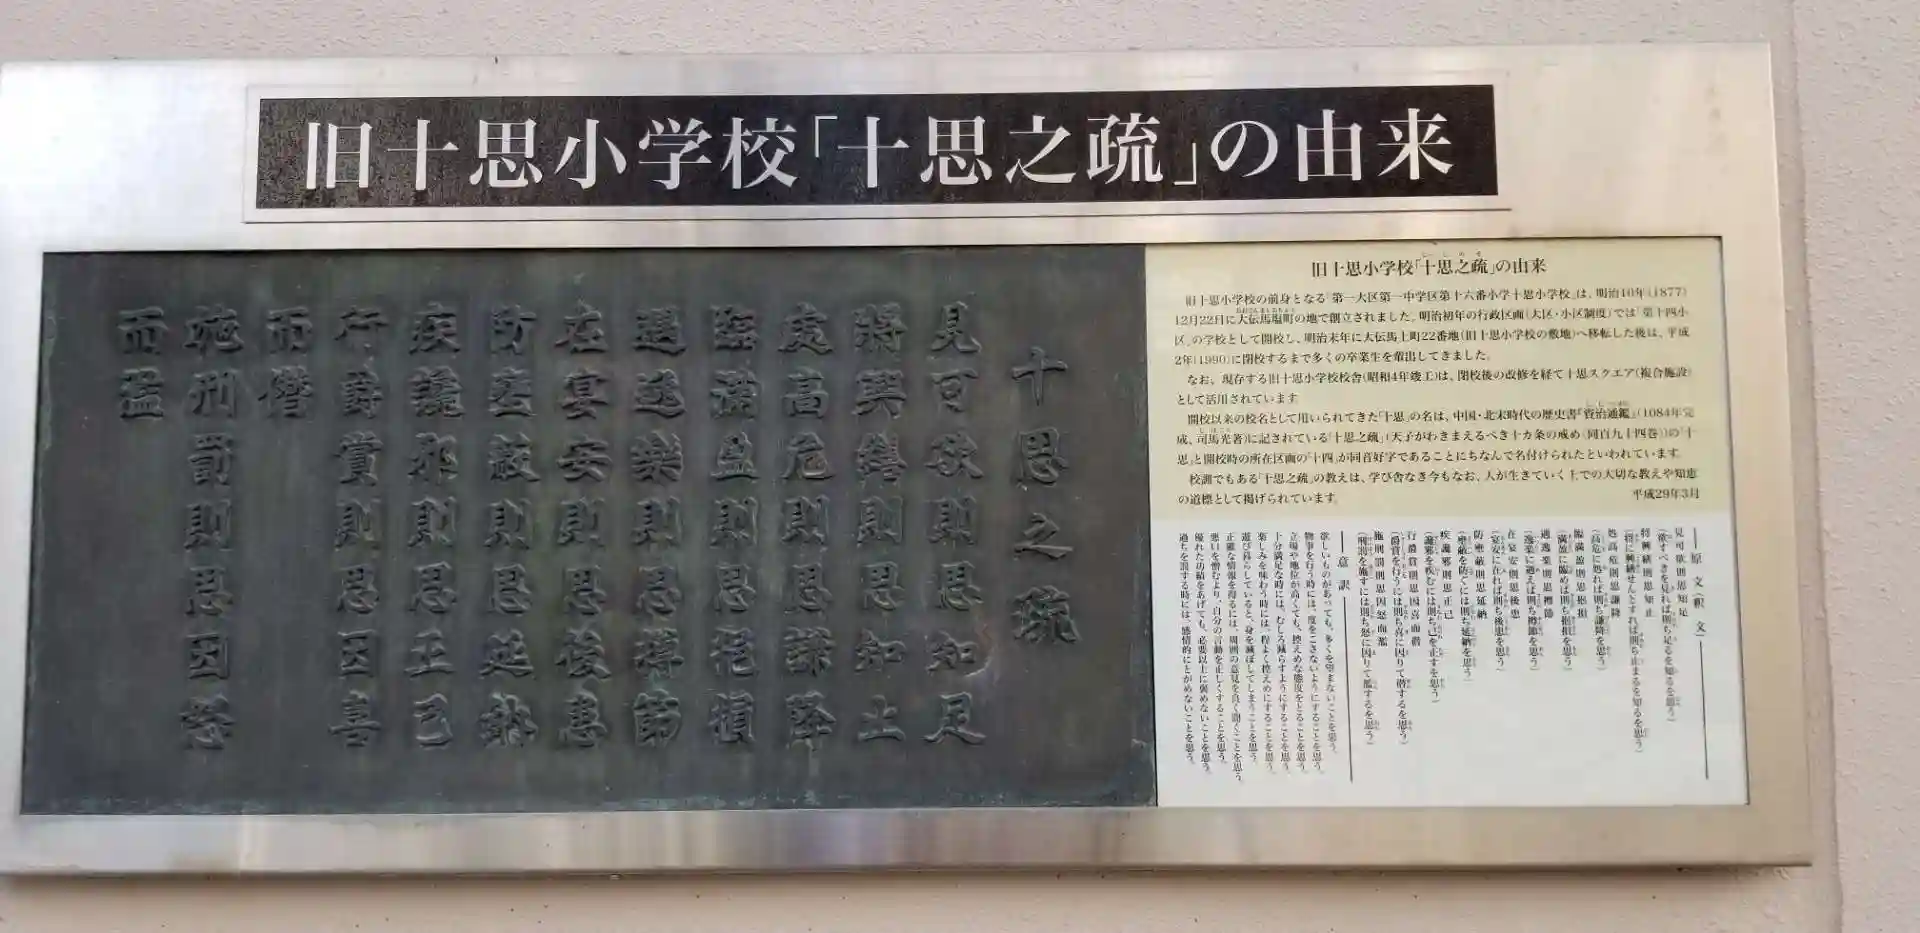 旧十思小学校「十思之疏」の由来
十思之疏
見可欲則思知足
將興繕則思知止
處高危則思謙降
臨滿盈則思挹損
遇逸樂則思撙節
在宴安則思後患
防壅蔽則思延納
疾讒邪則思正己
行爵賞則思因喜
而僭
施刑罰則思因怒
而濫
旧十思小学校「十思之疏」の由来
旧十思小学校の前身となる「第一大区第一中学区第十六番小学十思小学校」は、明治10年(1877)
12月22日に大伝馬塩町の地で創立されました。明治初年の行政区画(大区・小区制度)では「第十四小
区」の学校として開校し、明治末年に大伝馬上町22番地(旧十思小学校の敷地)へ移転した後は、平成
2年(1990)に閉校するまで多くの卒業生を輩出してきました。
なお、現存する旧十思小学校校舎(昭和4年竣工)は、閉校後の改修を経て十思スクエア(複合施設)
として活用されています。
開校以来の校名として用いられてきた「十思」の名は、中国・北宋時代の歴史書『資治通鑑』(1084年完
成、司馬光著)に記されている「十思之疏」(天子がわきまえるべき十カ条の戒め(同百九十四巻))の「十
思」と開校時の所在区画の「十四」が同音好字であることにちなんで名付けられたといわれています。
校訓でもある「十思之疏」の教えは、学び舎なき今もなお、人が生きていく上での大切な教えや知恵
の道標として掲げられています。
平成29年3月
原文(釈文)
見可欲則思知足
(欲すべきを見れば則ち足るを知るを思う)
将興繕則思知止
(将に興繕せんとすれば則ち止まるを知るを思う)
処高危則思謙降
(高危に処れば則ち謙降を思う)
臨満盈則思挹損
(満盈に臨めば則ち挹損を思う)
遇逸楽則思撙節
(逸楽に遇えば則ち撙節を思う)
在宴安則思後患
(宴安に在れば則ち後患を思う)
防壅蔽則思延納
(壅蔽を防ぐには則ち延納を思う)
疾讒邪則思正己
(讒邪を疾むには則ち己を正すを思う)
行爵賞則思因喜而僭
(爵賞を行うには則ち喜に因りて僭するを思う)
施刑罰則思因怒而濫
(刑罰を施すには則ち怒に因りて濫するを思う)
意訳
欲しいものがあっても、多くを望まないことを思う。
物事を行う時には、度をこさないようにすることを思う。
立場や地位が高くても、控えめな態度をとることを思う。
十分満足な時には、むしろ減らすようにすることを思う。
楽しみを味わう時には、程よく控えめにすることを思う。
遊び暮らしていると、身を滅ぼしてしまうことを思う。
正確な情報を得るには、周囲の意見を良く聞くことを思う。
悪い行を憎むより、自分の言動を正しくすることを思う。
優れた功績をあげても、必要以上に褒めないことを思う。
過ちを罰する時には、感情的にとがめないことを思う。